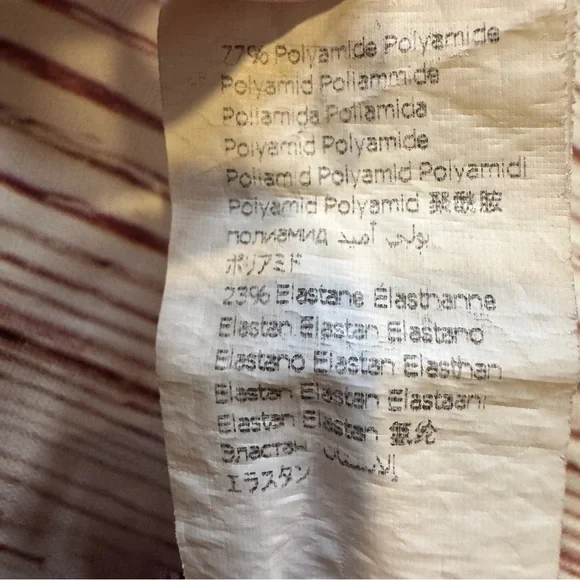 77% Polyamide Polyamide
Polyamid Poliammide
Poliamida Poliamida
Polyamid Polyamide
Poliamid Polyamid Polyamidi
Polyamid Polyamid 聚酰胺
полиамид بولي أميد
ポリアミド
23% Elastane Élasthanne
Elastan Elastan Elastano
Elastano Elastan Elasthan
Elastan Elastan Elastaani
Elastan Elastan 氨纶
Эластан إلاستان
エラスタン